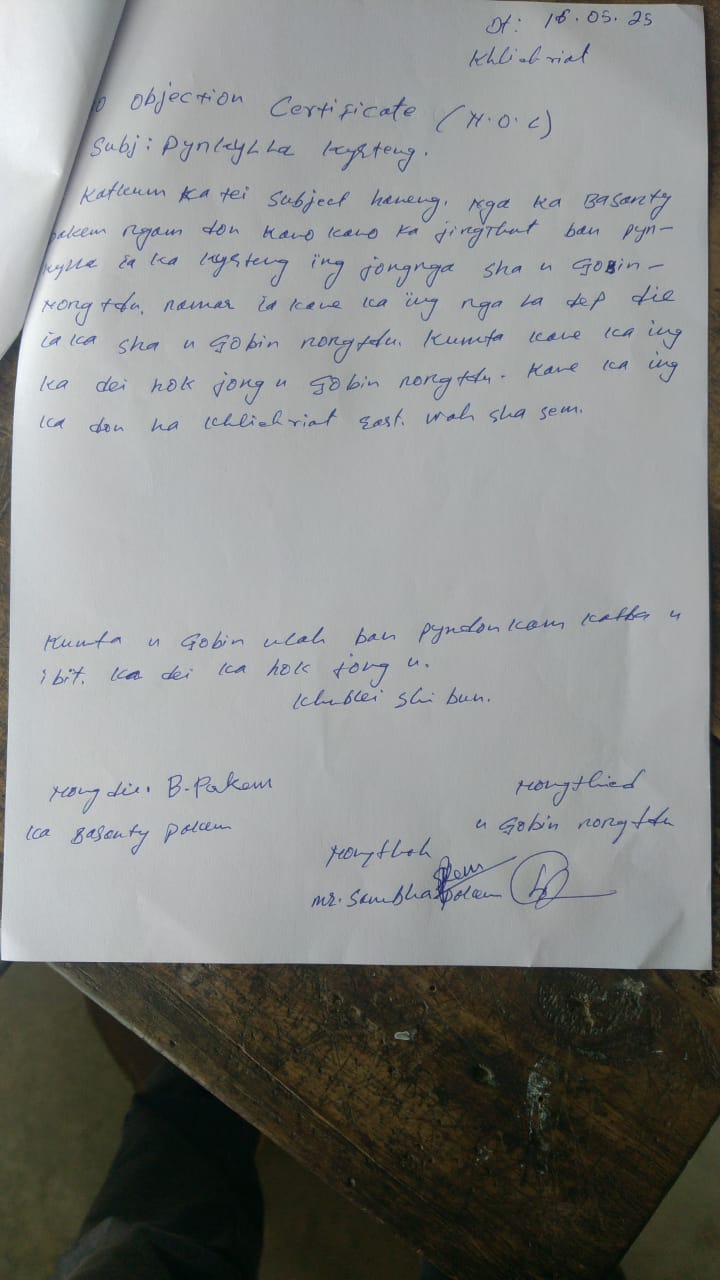 Dt: 16.05.25
Khliehriat
o Objection Certificate (N.O.C)
Subj: Pynkylla kyrteng.
Katkum ka tei subject haneng. Nga ka Basanty
pakem ngam don kano kano ka jingthut ban pyn-
kylla ia ka kyrteng ïng jongnga sha u Gobin-
Nongtdu, namar ia kane ka ïng nga la dep die
ia ka sha u Gobin nongtdu. Kumta kane ka ing
ka dei hok jong u Gobin nongtdu. Kane ka ing
ka don ha Khliehriat East. Wah sha sem.
Kumta u Gobin ulah ban pyndonkam katba u
i bit. Ka dei ka hok jong u.
Khublei shi bun.
Nongdie. B. Pakem
Ka Basanty pakem
Nongthied
u Gobin nongtdu
Nongthoh
mr. Sambha pakem